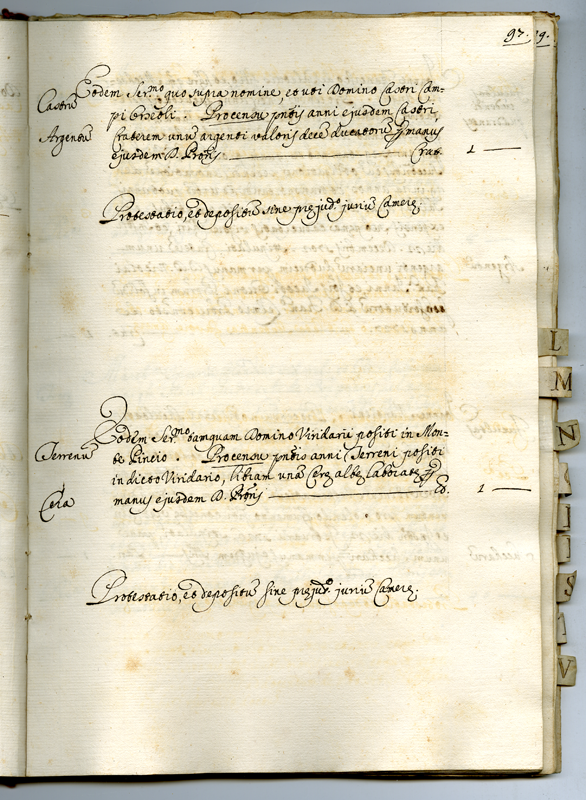 97. 9.
Castrũ
Argentũ
Eodem Ser.mo quo supra nomine, et uti Domino Castri Cam=
pi Orseoli. Pro censu pñtis anni ejusdem Castri,
Craterem unũ argenti valoris decẽ ducatorũ p manus
ejusdem D. Pro͠ris Crat. 1 —
Protestatio, et depositũ sine prejud.o juriũ Camerę.
Terrenũ
Cera
Eodem Ser.mo tamquam Domino Viridarii positi in Mon=
te Pincio. Pro censu pñtis anni Terreni positi
in dicto Viridario, libram unã Cerę albę laboratę p
manus ejusdem D. Pro͠ris lb. 1 —
Protestatio, et depositũ sine prejud.o juriũ Camerę.
L
M
N
I
S
V